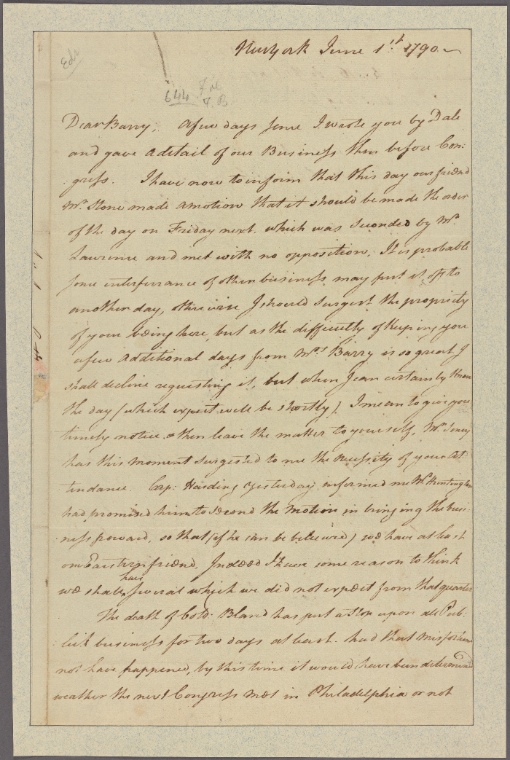 Newyork June 1st 1790
Eds
644
Dear Barry. A few days since I wrote you by Dale
and gave a detail of our Business then before Con-
gress. I have now to inform that this day our friend
Mr. Stone made a motion that it should be made the order
of the day on Friday next. which was seconded by Mr.
Lawrence and met with no opposition. It is probable
some interferrance of other business, may put it off to
another day, otherwise I should surgest the propriety
of your being here, but as the difficulty of keeping you
a few additional days from Mrs. Barry is so great I
shall decline requesting it, but when I can certainly know
the day (which expect will be shortly) I mean to give you
timely notice & then leave the matter to yourself. Mr.
has this moment surgested to me the necessity of your at-
tendance. Cap: Harding yesterday informed me Mr. Huntington
had promised him to second the motion in bringing the busi-
ness forward, so that (if he can be believed) we have at least
one Eastern friend, Indeed I have some reason to think
we shall have several which we did not expect from that quarter
The death of Colo. Bland has put a stop upon all Pub-
lick business for two days at least. had that misfortune
not have happened, by this time it would have been determined
weather the next Congress met in Philadelphia or not